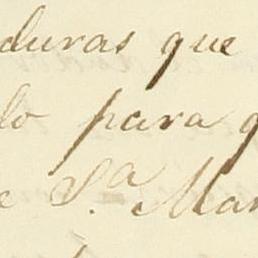 duras que
lo para q
e S.ª Mar